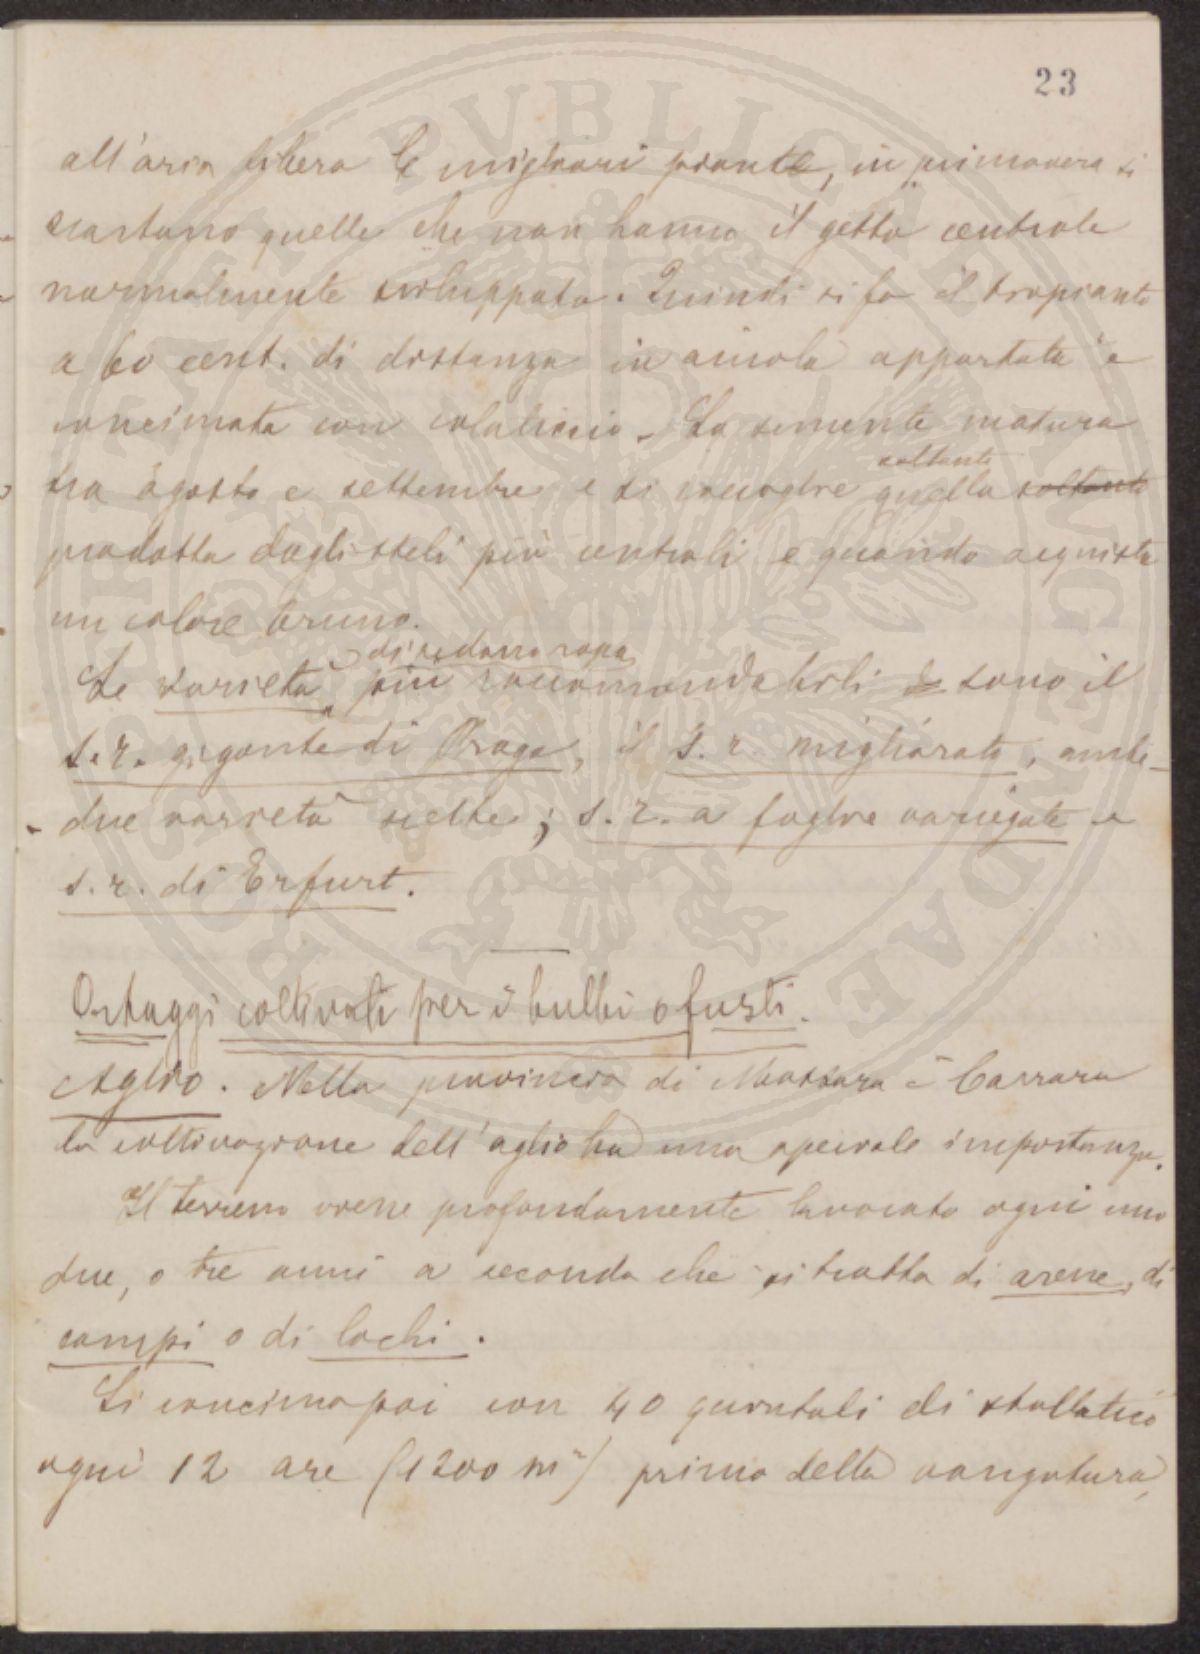 23
all'aria libera le migliori piante, in primavera si
scartano quelle che non hanno il getto centrale
normalmente sviluppato. Quindi si fa il trapianto
a 60 cent. di distanza in aiuola appartata e
concimata con colaticcio. La semente matura
soltanto
tra agosto e settembre e si raccoglie quella soltanto
prodotta dagli steli più centrali e quando acquista
un colore bruno.
di sedano rapa
Le varietà più raccomandabili sono il
s.r. gigante di Praga, il s.r. migliorato, ambe-
due varietà scelte; s.r. a foglie variegate e
s.r. di Erfurt.
Ortaggi coltivati per i bulbi o fusti.
Aglio. Nella provincia di Massara e Carrara
la coltivazione dell'aglio ha una speciale importanza.
Il terreno viene profondamente lavorato ogni uno
due, o tre anni a seconda che si tratta di arene, di
campi o di lochi.
Si concima poi con 40 quintali di stallatico
ogni 12 are (1200 m²) prima della vangatura,